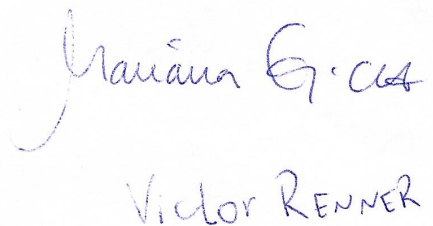 Mariana
Victor RENNER